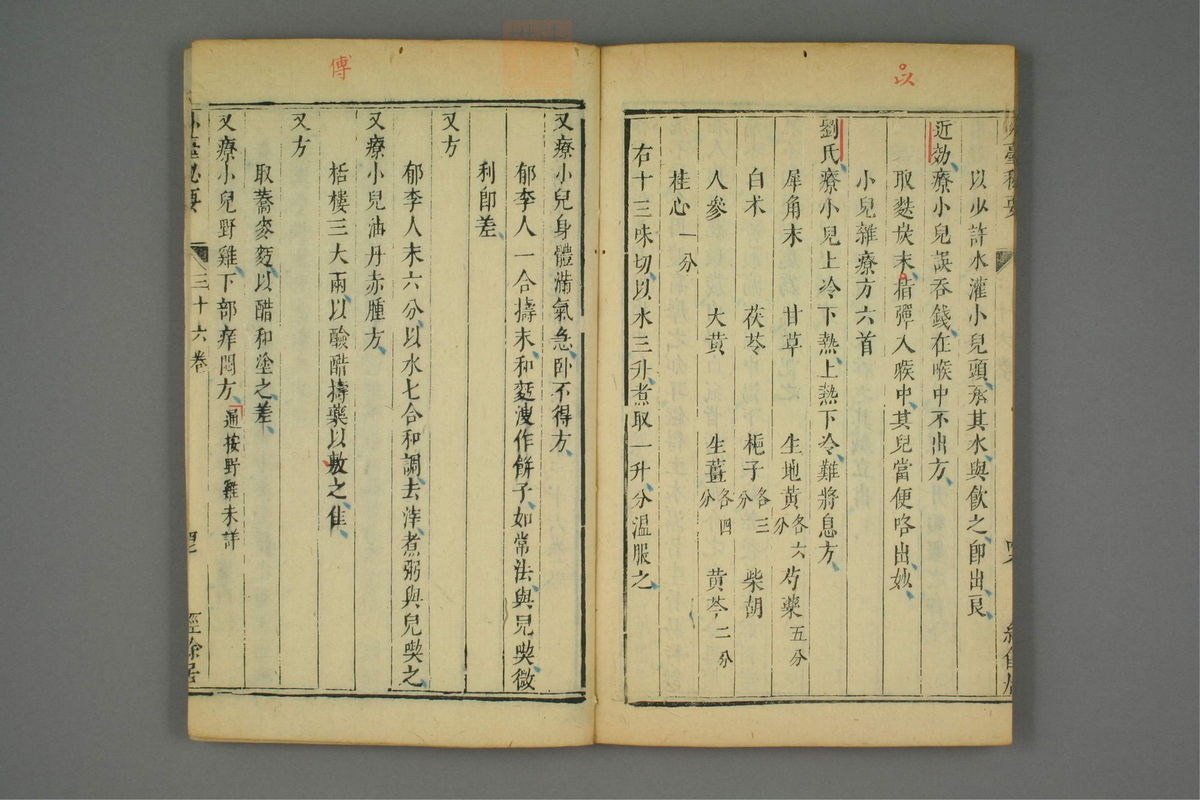 以
以少許水灌小兒頭承其水與飲之即出良
近効療小兒誤吞錢在喉中不出方
取麩炭末指彈入喉中其兒當便咯出妙
小兒雜療方六首
劉氏療小兒上冷下熱上熱下冷難將息方
犀角末 甘草 生地黃各六分 芍藥五分
白术 茯苓 梔子各三分 柴胡
人參 大黃 生薑各四分 黄芩二分
桂心一分
右十三味切以水三升煮取一升分溫服之
傅
又療小兒身體滿氣急卧不得方
郁李人一合擣末和麪溲作餅子如常法與兒喫微
利即差
又方
郁李人末六分以水七合和調去滓煮粥與兒喫之
又療小兒油丹赤腫方
栝樓三大兩以釅醋擣藥以敷之佳
又方
取蕎麥麪以醋和塗之差
又療小兒野雞下部痒悶方 通按野雞未詳
三十六卷
經餘居